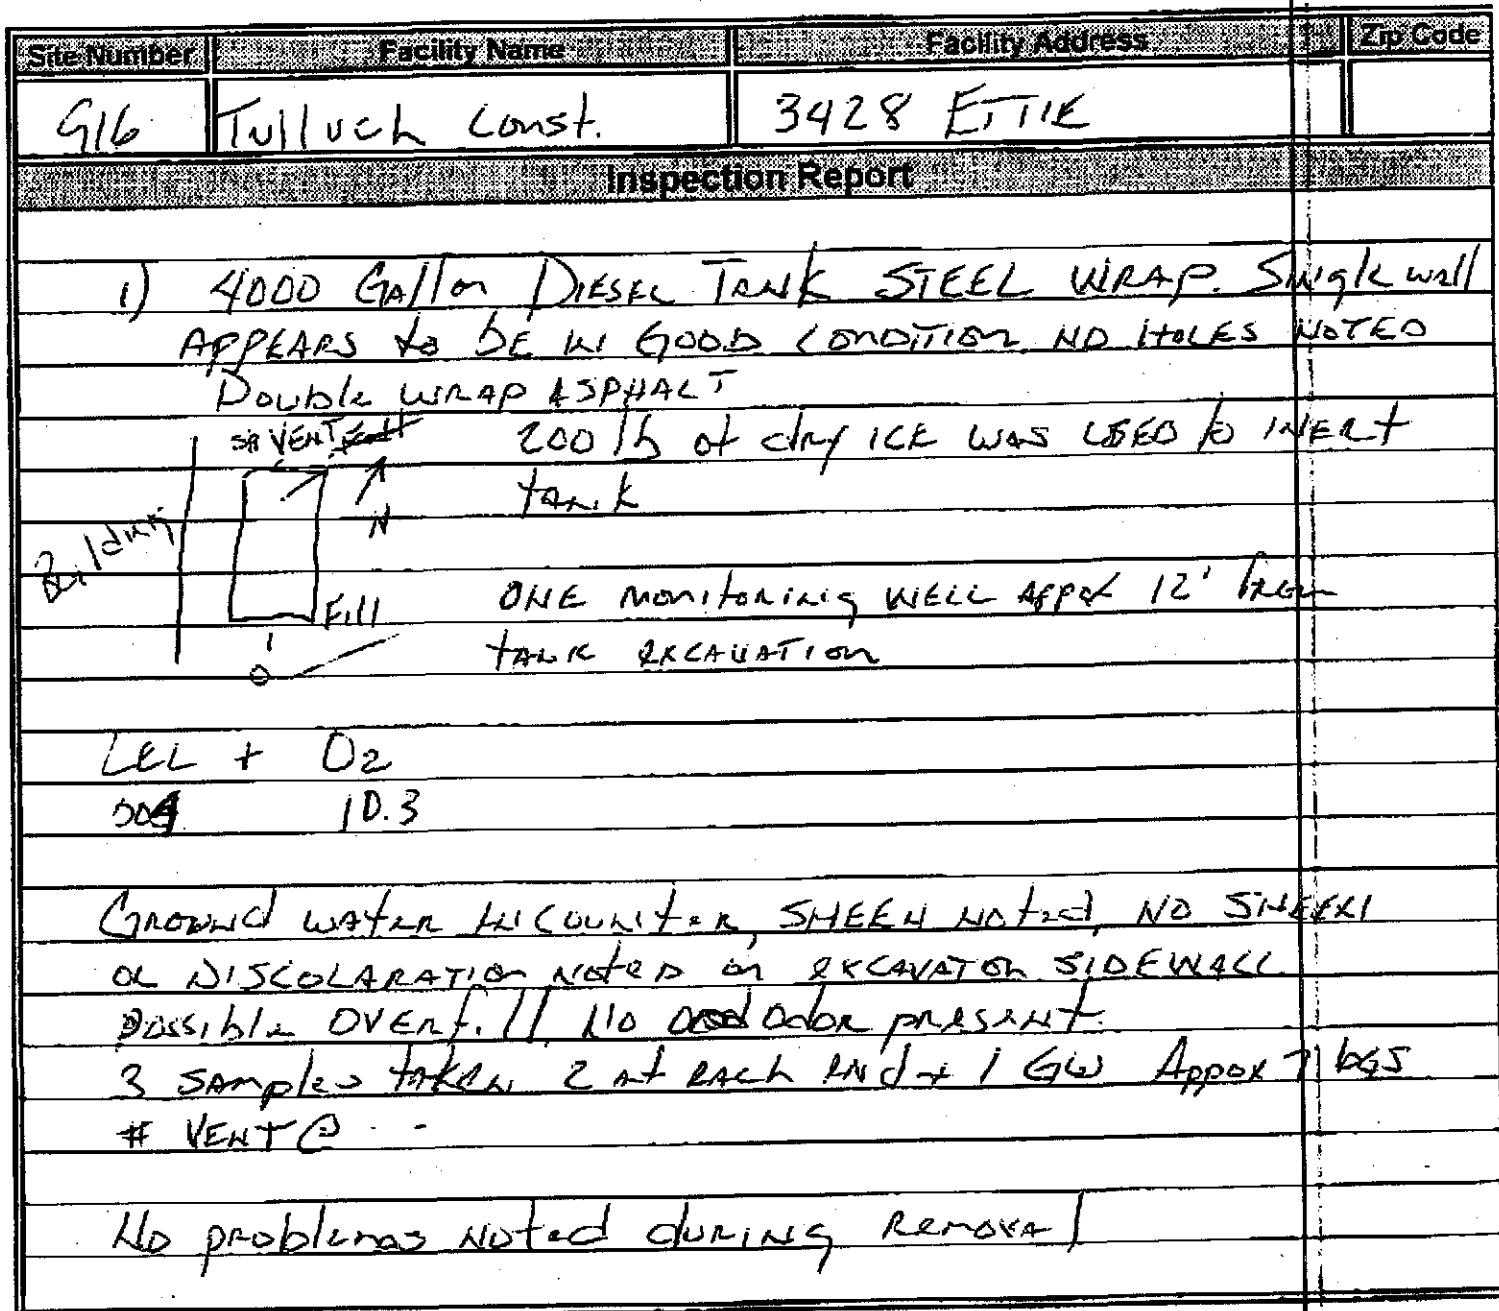 Site Number Facility Name Facility Address Zip Code
916 Tulluch Const. 3428 ETTIE
Inspection Report
1) 4000 Gallon DIESEL TANK STEEL WRAP. Single wall
APPEARS to BE IN GOOD CONDITION NO HOLES NOTED
Double WRAP ASPHALT
VENT 200 lb of dry ICE WAS USED to INERT
N tank
Building
Fill ONE monitoring WELL Appox 12' from
TANK EXCAVATION
LEL + O2
004 10.3
Ground water ENCOUNTER, SHEEN Noted, NO SHEEN
OR DISCOLARATION NOTED on EXCAVATON SIDEWALL
Possible OVERfill NO Odor present.
3 SAMples taken 2 at EACH END + 1 GW Appox 7' bgs
# VENT @
No problems Noted during Removal